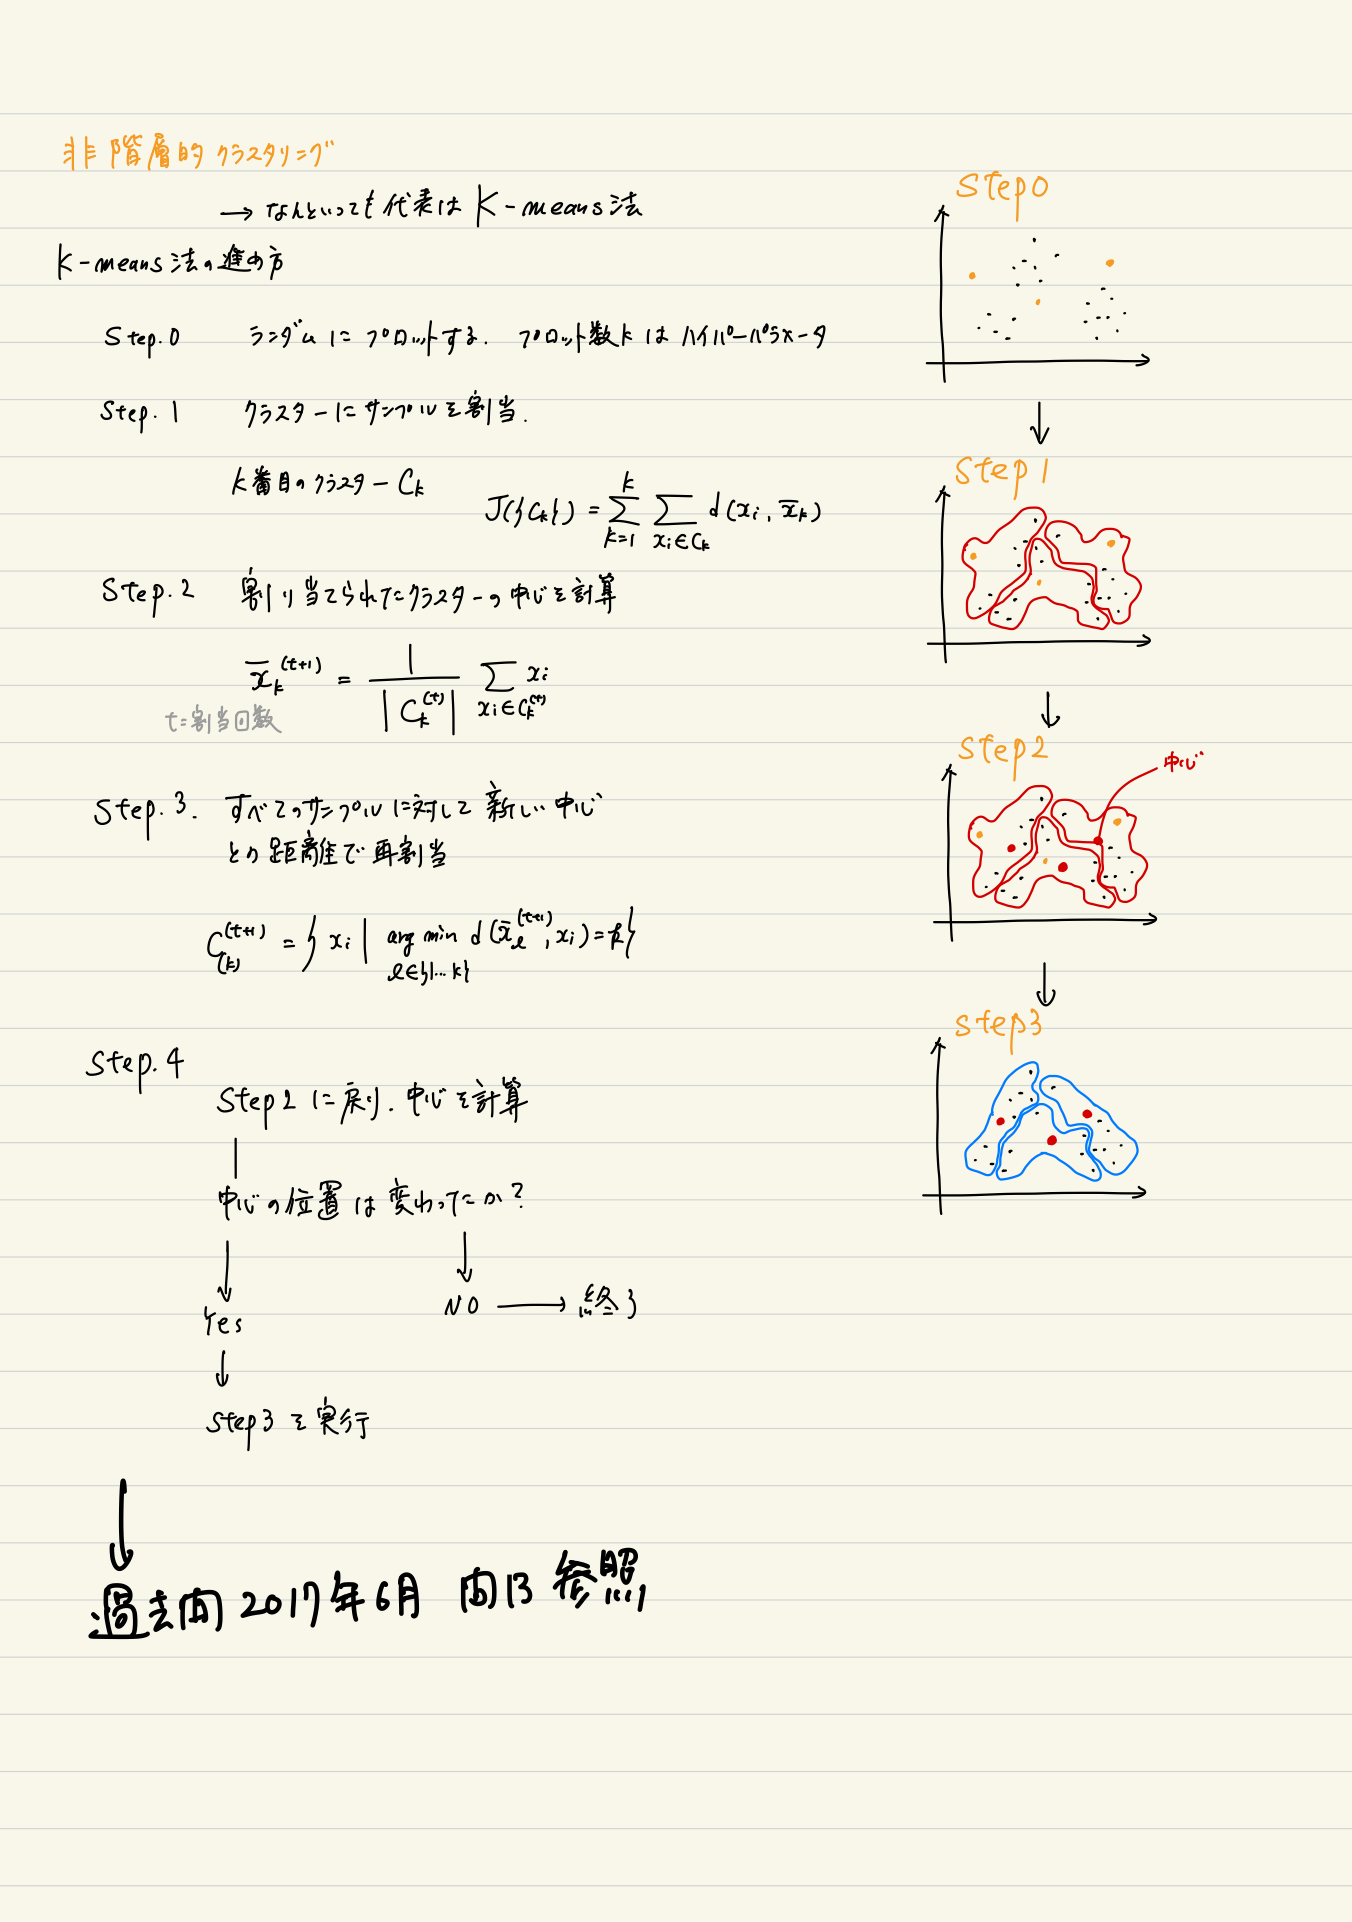 非階層的クラスタリング
→ なんといっても代表は K-means法
K-means法の進め方
Step.0 ランダムにプロットする. プロット数kはハイパーパラメータ
Step.1 クラスターにサンプルを割当.
k番目のクラスターCk
J({Ck}) = Σ_{k=1}^{k} Σ_{xi∈Ck} d(xi, x̄k)
Step.2 割り当てられたクラスターの中心を計算
x̄k^(t+1) = 1/|Ck^(t)| Σ_{xi∈Ck^(t)} xi
t=割当回数
Step.3. すべてのサンプルに対して新しい中心
との距離で再割当
C(k)^(t+1) = {xi | arg min_{l∈{1…k}} d(x̄l^(t+1), xi) = k}
Step.4
Step2に戻り. 中心を計算
中心の位置は変わったか?
Yes
NO → 終了
step3を実行
過去問2017年6月 問13参照
Step0
Step1
Step2
中心
Step3